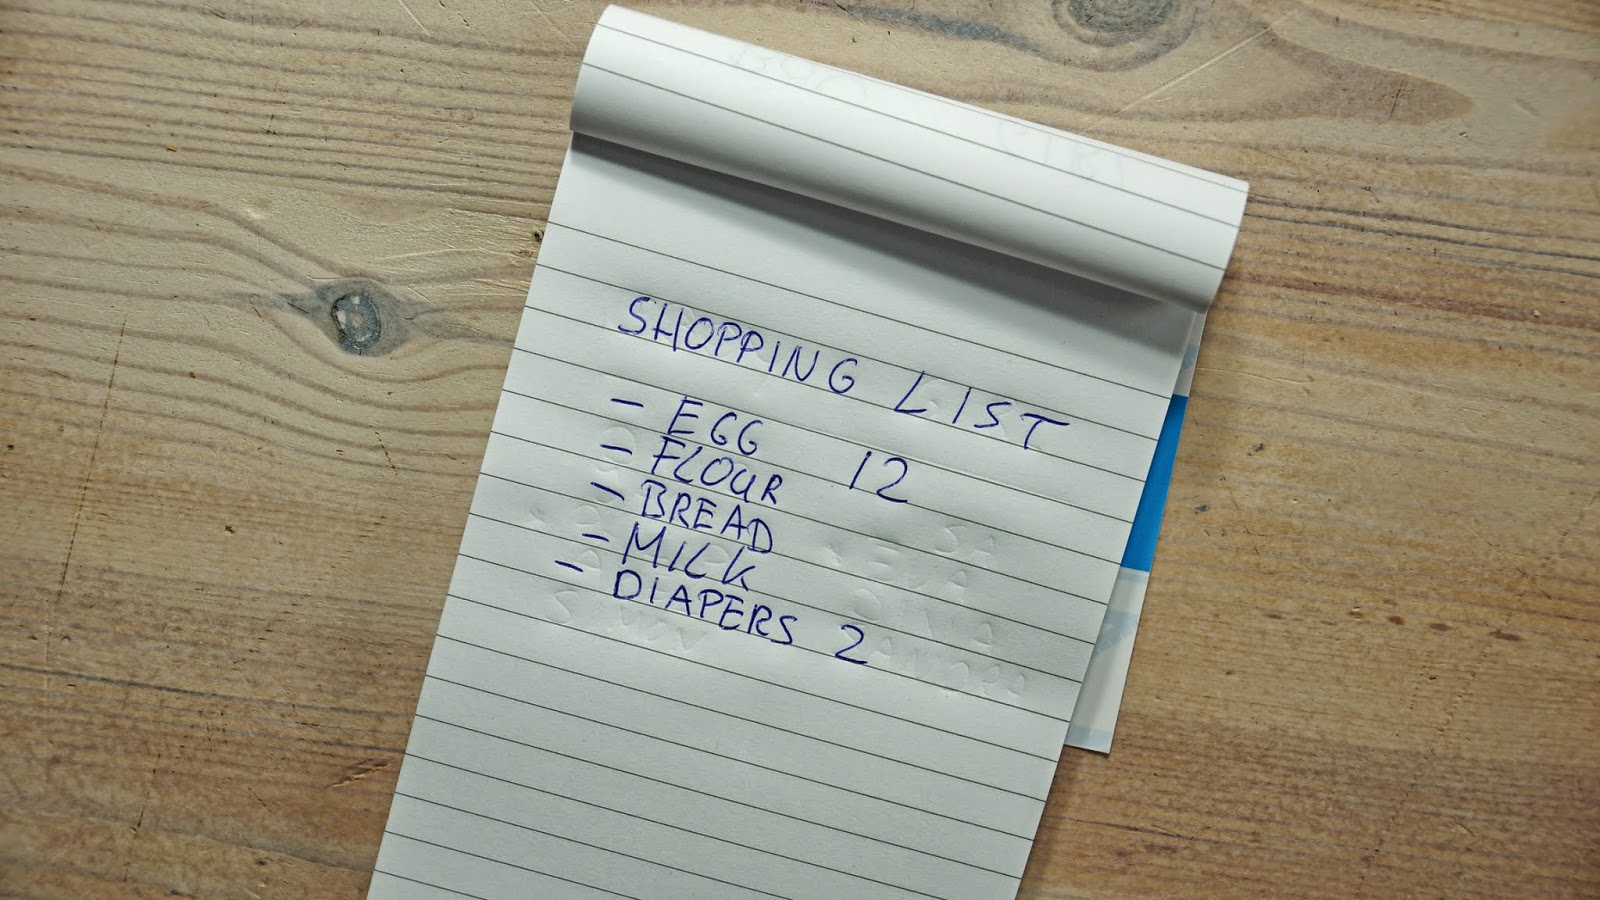 SHOPPING LIST
- EGG 12
- FLOUR
- BREAD
- MILK
- DIAPERS 2